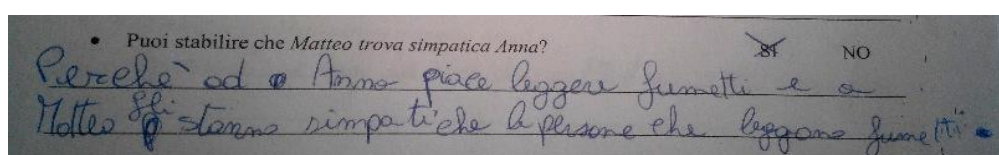 • Puoi stabilire che Matteo trova simpatica Anna? SI NO
Perchè ad Anna piace leggere fumetti e a
Matteo gli stanno simpatiche le persone che leggono fumetti.